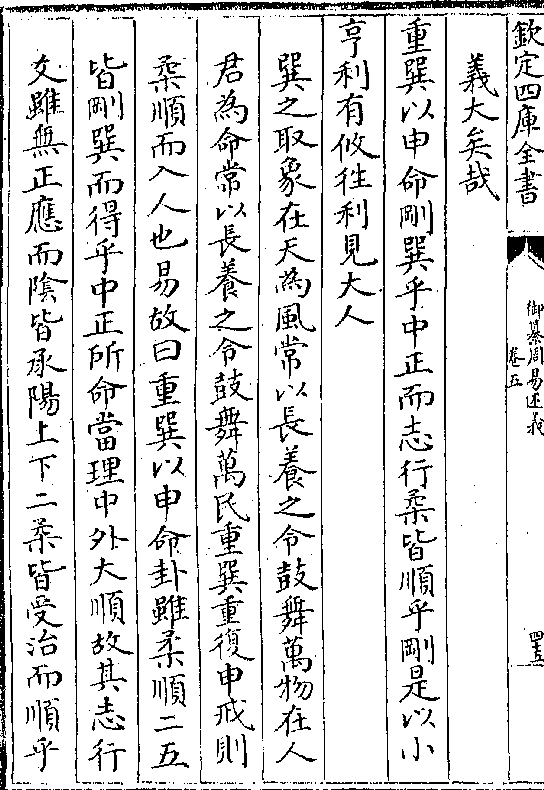 欽定四庫全書
御纂周易述義
卷五
四五
義大矣哉
重巽以申命剛巽乎中正而志行柔皆順乎剛是以小
亨利有攸往利見大人
巽之取象在天為風常以長養之令鼓舞萬物在人
君為命常以長養之令鼓舞萬民重巽重復申戒則
柔順而入人也易故曰重巽以申命卦雖柔順二五
皆剛巽而得乎中正所命當理中外大順故其志行
爻雖無正應而陰皆承陽上下二柔皆受治而順乎